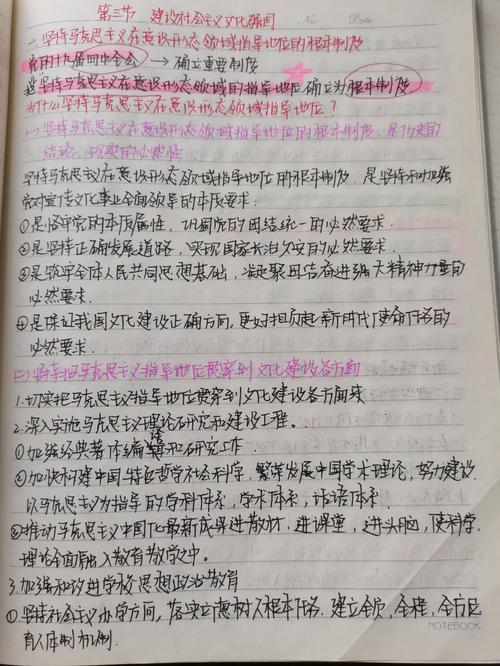 第三节 建设社会主义文化强国
No. Date.
一、坚持马克思主义在意识形态领域指导地位的根本制度
党的十九届四中全会 → 确立重要制度
我坚持马克思主义在意识形态领域的指导地位确立为根本制度
为什么坚持马克思主义在意识形态领域指导地位?
(一)坚持马克思主义在意识形态领域指导地位的根本制度,是历史的
结论,现实的必然性.
坚持马克思主义在意识形态领域指导地位的根本制度,是坚持和加强
党对宣传文化事业全面领导的本质要求:
①是坚守党的本质属性,巩固党的团结统一的必然要求.
②是坚持正确发展道路,实现国家长治久安的必然要求.
③是筑牢全体人民共同思想基础,凝聚团结奋进强大精神力量的
必然要求.
④是保证我国文化建设正确方向,更好担负起新时代使命任务的
必然要求.
(二)坚持把马克思主义指导地位贯穿到文化建设各方面
1.切实把马克思主义指导地位贯穿到文化建设各方面来
2.深入实施马克思主义理论研究和建设工程.
①加强经典著作编译和研究工作.
②加快构建中国特色哲学社会科学,繁荣发展中国学术理论,努力建设
以马克思主义为指导的学科体系,学术体系,话语体系.
③推动马克思主义中国化最新成果进教材,进课堂,进头脑,使科学
理论全面融入教育教学之中。
3.加强和改进学校思想政治教育
①坚持社会主义办学方向,落实立德树人根本任务.建立全员,全程,全方位
育人体制机制.
NOTEBOOK